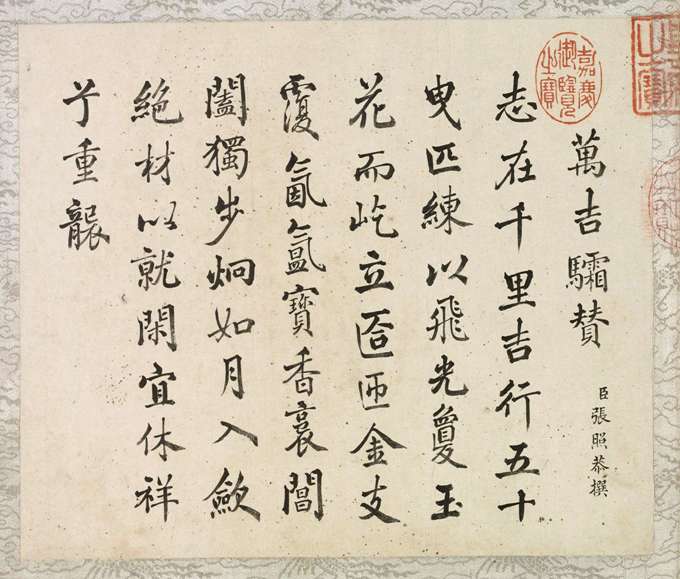 萬吉驦賛
臣張照恭撰
志在千里吉行五十
曳匹練以飛光敻玉
花而屹立匼匝金支
覆氤氳寶香裛閶
闔獨步炯如月入斂
絶材以就閑宜休祥
兮重襲
嘉慶御覽之寶